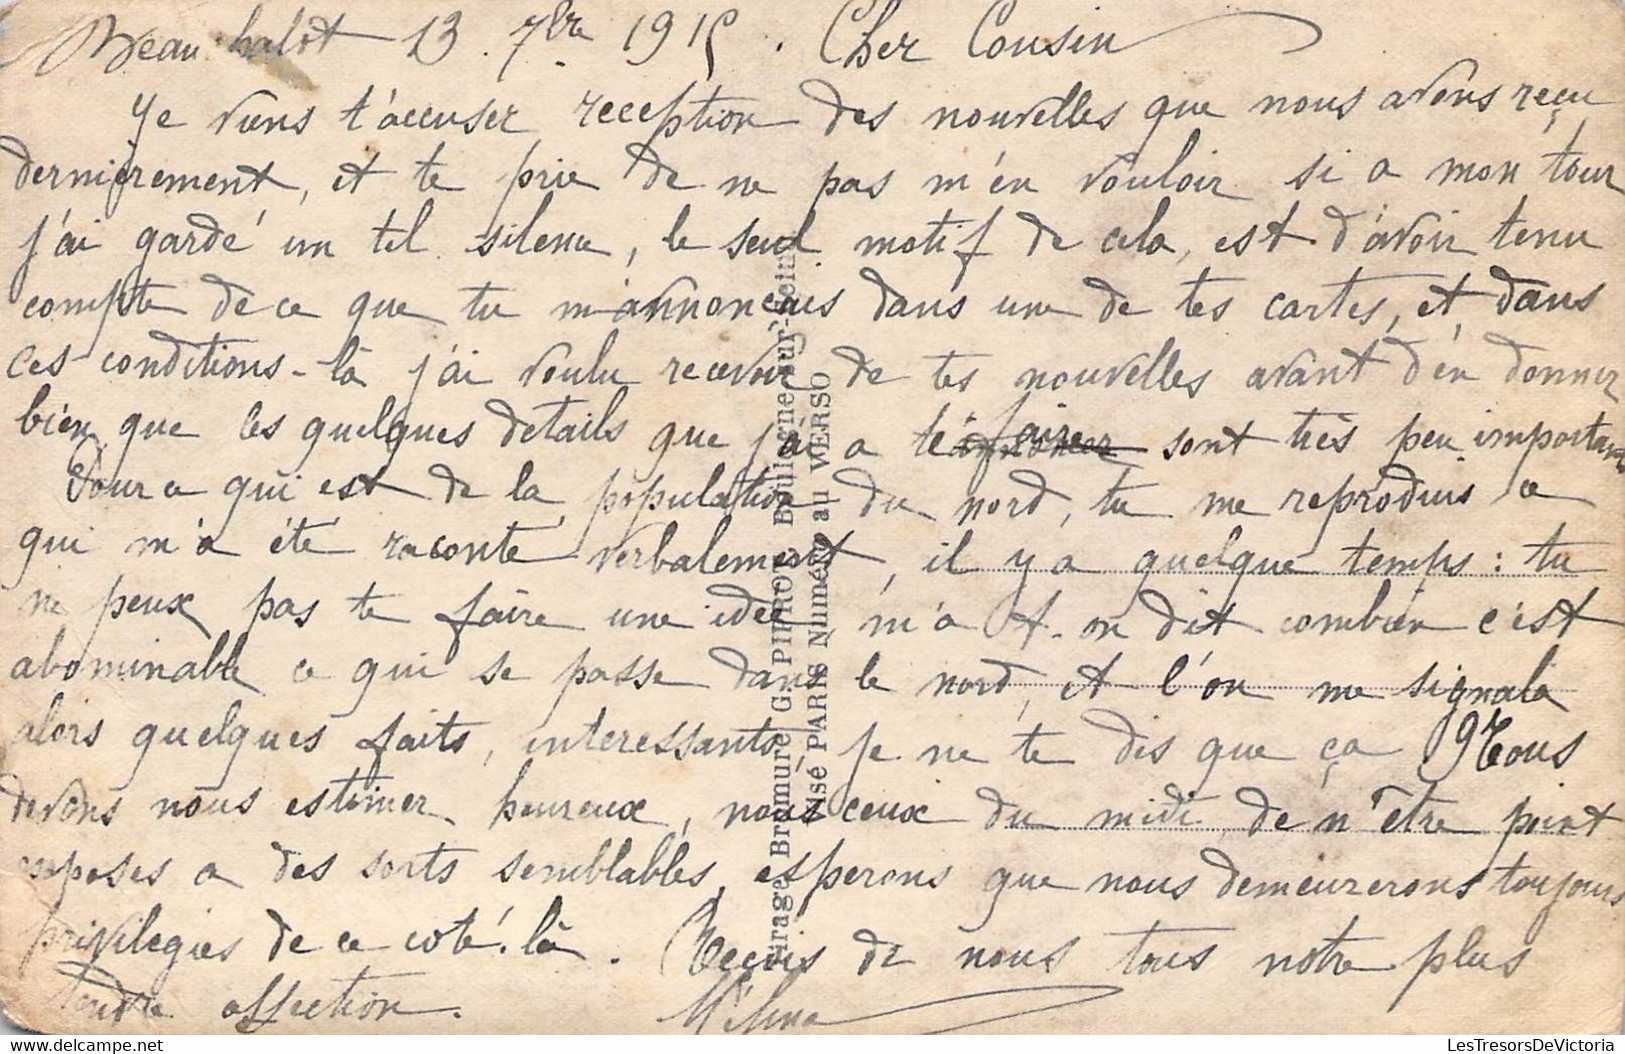 Beau halot 13. 7bre 1915. Cher Cousin
Je viens t'accuser reception des nouvelles que nous avons reçu
dernièrement, et te prie de ne pas m'en vouloir si a mon tour
j'ai gardé un tel silence, le seul motif de cela, est d'avoir tenu
compte de ce que tu m'annonçais dans une de tes cartes, et dans
ces conditions-là j'ai voulu recevoir de tes nouvelles avant d'en donner
bien que les quelques détails que j'ai a te faire sont très peu important
Pour ce qui est de la population du nord, tu me reproduis ce
qui m'a été raconté verbalement, il y a quelque temps: tu
ne peux pas te faire une idée m'a t-on dit combien c'est
abominable ce qui se passe dans le nord, et l'on me signala
alors quelques faits, interessants je ne te dis que ça Nous
devons nous estimer heureux, nous ceux du midi de n'être point
exposés a des sorts semblables, esperons que nous demeurerons toujours
privilegies de ce coté-là. Reçois de nous tous notre plus
tendre affection.
Tirage Bromure G. PIPROT Boulogne-sur-Seine
Visé PARIS Numéro au VERSO
LesTresorsDeVictoria